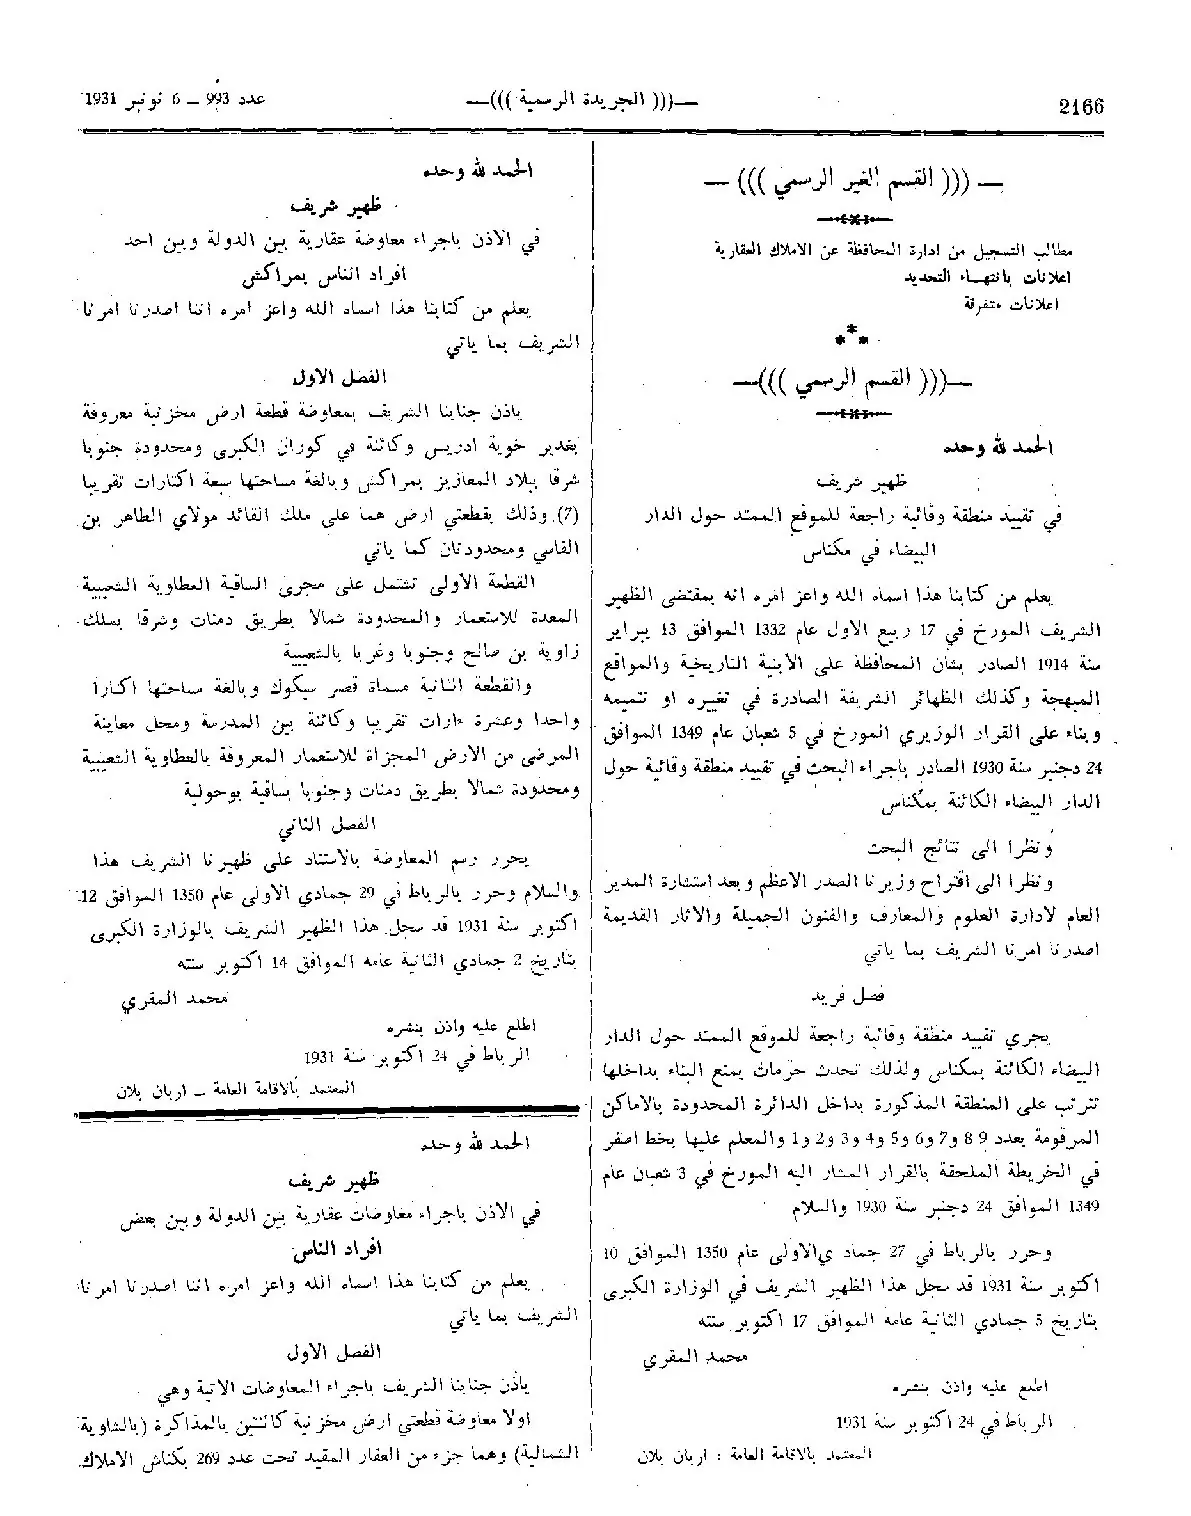 2166
—((( الجريدة الرسمية )))—
عدد 993 — 6 نونبر 1931
— ((( القسم الغير الرسمي ))) —
مطالب التسجيل من ادارة المحافظة عن الاملاك العقارية
اعلانات بانتهاء التحديد
اعلانات متفرقة
***
—((( القسم الرسمي )))—
الحمد لله وحده
ظهير شريف
في تقييد منطقة وقائية راجعة للموقع الممتد حول الدار
البيضاء في مكناس
يعلم من كتابنا هذا اسماه الله واعز امره انه بمقتضى الظهير
الشريف المورخ في 17 ربيع الاول عام 1332 الموافق 13 يبراير
سنة 1914 الصادر بشأن المحافظة على الابنية التاريخية والمواقع
المبهجة وكذلك الظهائر الشريفة الصادرة في تغييره او تتميمه
وبناء على القرار الوزيري المورخ في 5 شعبان عام 1349 الموافق
24 دجنبر سنة 1930 الصادر باجراء البحث في تقييد منطقة وقائية حول
الدار البيضاء الكائنة بمكناس
ونظرا الى نتائج البحث
ونظرا الى اقتراح وزيرنا الصدر الاعظم وبعد استشارة المدير
العام لادارة العلوم والمعارف والفنون الجميلة والاثار القديمة
اصدرنا امرنا الشريف بما ياتي
فصل فريد
يجري تقييد منطقة وقائية راجعة للموقع الممتد حول الدار
البيضاء الكائنة بمكناس ولذلك تحدث حرمات بمنع البناء بداخلها
تترتب على المنطقة المذكورة بداخل الدائرة المحدودة بالاماكن
المرقومة بعدد 9 8 و7 و6 و5 و4 و3 و2 و1 والمعلم عليها بخط اصفر
في الخريطة الملحقة بالقرار المشار اليه المورخ في 3 شعبان عام
1349 الموافق 24 دجنبر سنة 1930 والسلام
وحرر بالرباط في 27 جماد ي‌الاولى عام 1350 الموافق 10
اكتوبر سنة 1931 قد سجل هذا الظهير الشريف في الوزارة الكبرى
بتاريخ 5 جمادي الثانية عامه الموافق 17 اكتوبر سنته
محمد المقري
اطلع عليه واذن بنشره
الرباط في 24 اكتوبر سنة 1931
المعتمد بالاقامة العامة : اربان بلان
الحمد لله وحده
ظهير شريف
في الاذن باجراء معاوضة عقارية بين الدولة وبين احد
افراد الناس بمراكش
يعلم من كتابنا هذا اسماه الله واعز امره اننا اصدرنا امرنا
الشريف بما ياتي
الفصل الاول
ياذن جنابنا الشريف بمعاوضة قطعة ارض مخزنية معروفة
بغدير خوية ادريس وكائنة في كوران الكبرى ومحدودة جنوبا
شرقا ببلاد المعازيز بمراكش وبالغة مساحتها سبعة اكتارات تقريبا
(7) وذلك بقطعتي ارض هما على ملك القائد مولاي الطاهر بن
الفاسي ومحدودتان كما ياتي
القطعة الأولى تشتمل على مجرى الساقية العطاوية الشعيبية
المعدة للاستعمار والمحدودة شمالا بطريق دمنات وشرقا بملك
زاوية بن صالح وجنوبا وغربا بالشعيبية
والقطعة الثانية مسماة قصر سيكوك وبالغة مساحتها اكتارا
واحدا وعشرة ءارات تقريبا وكائنة بين المدرسة ومحل معاينة
المرضى من الارض المجزاة للاستعمار المعروفة بالعطاوية الشعيبية
ومحدودة شمالا بطريق دمنات وجنوبا بساقية بوحولية
الفصل الثاني
يحرر رسم المعاوضة بالاستناد على ظهيرنا الشريف هذا
والسلام وحرر بالرباط في 29 جمادي الاولى عام 1350 الموافق 12
اكتوبر سنة 1931 قد سجل هذا الظهير الشريف بالوزارة الكبرى
بتاريخ 2 جمادي الثانية عامه الموافق 14 اكتوبر سنته
محمد المقري
اطلع عليه واذن بنشره
الرباط في 24 اكتوبر سنة 1931
المعتمد بالاقامة العامة — اربان بلان
الحمد لله وحده
ظهير شريف
في الاذن باجراء معاوضات عقارية بين الدولة وبين بعض
افراد الناس
يعلم من كتابنا هذا اسماه الله واعز امره اننا اصدرنا امرنا
الشريف بما ياتي
الفصل الاول
ياذن جنابنا الشريف باجراء المعاوضات الاتية وهي
اولا معاوضة قطعتي ارض مخزنية كائنتين بالمذاكرة (بالشاوية
الشمالية) وهما جزء من العقار المقيد تحت عدد 269 بكناش الاملاك